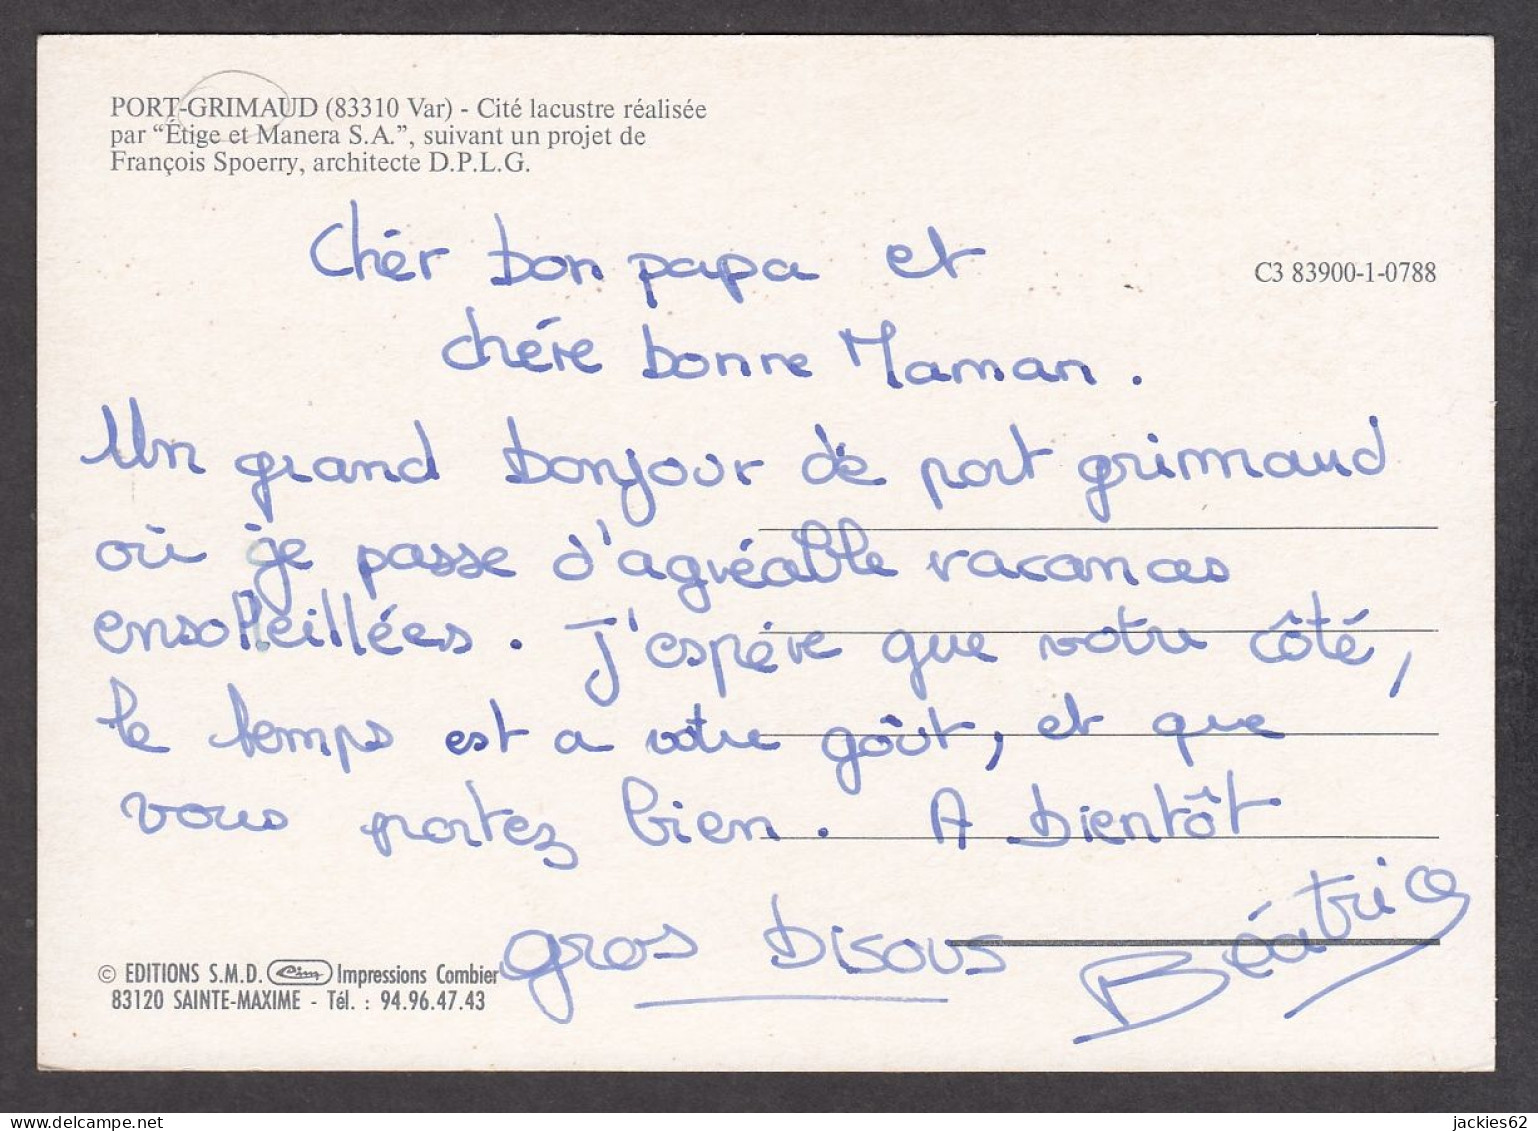 PORT-GRIMAUD (83310 Var) - Cité lacustre réalisée
par “Étige et Manera S.A.”, suivant un projet de
François Spoerry, architecte D.P.L.G.
Chér bon papa et
C3 83900-1-0788
chére bonne Maman.
Un grand bonjour de port grimaud
où je passe d'agréable vacances
ensoleillées. J'espére que votre côté,
le temps est a votre goût, et que
vous portez bien. A bientôt
gros bisous Béatrice
© EDITIONS S.M.D. Cim Impressions Combier
83120 SAINTE-MAXIME - Tél. : 94.96.47.43
delcampe.net
jackies62